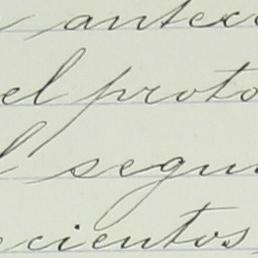 antece
el proto
l segun
ecientos,